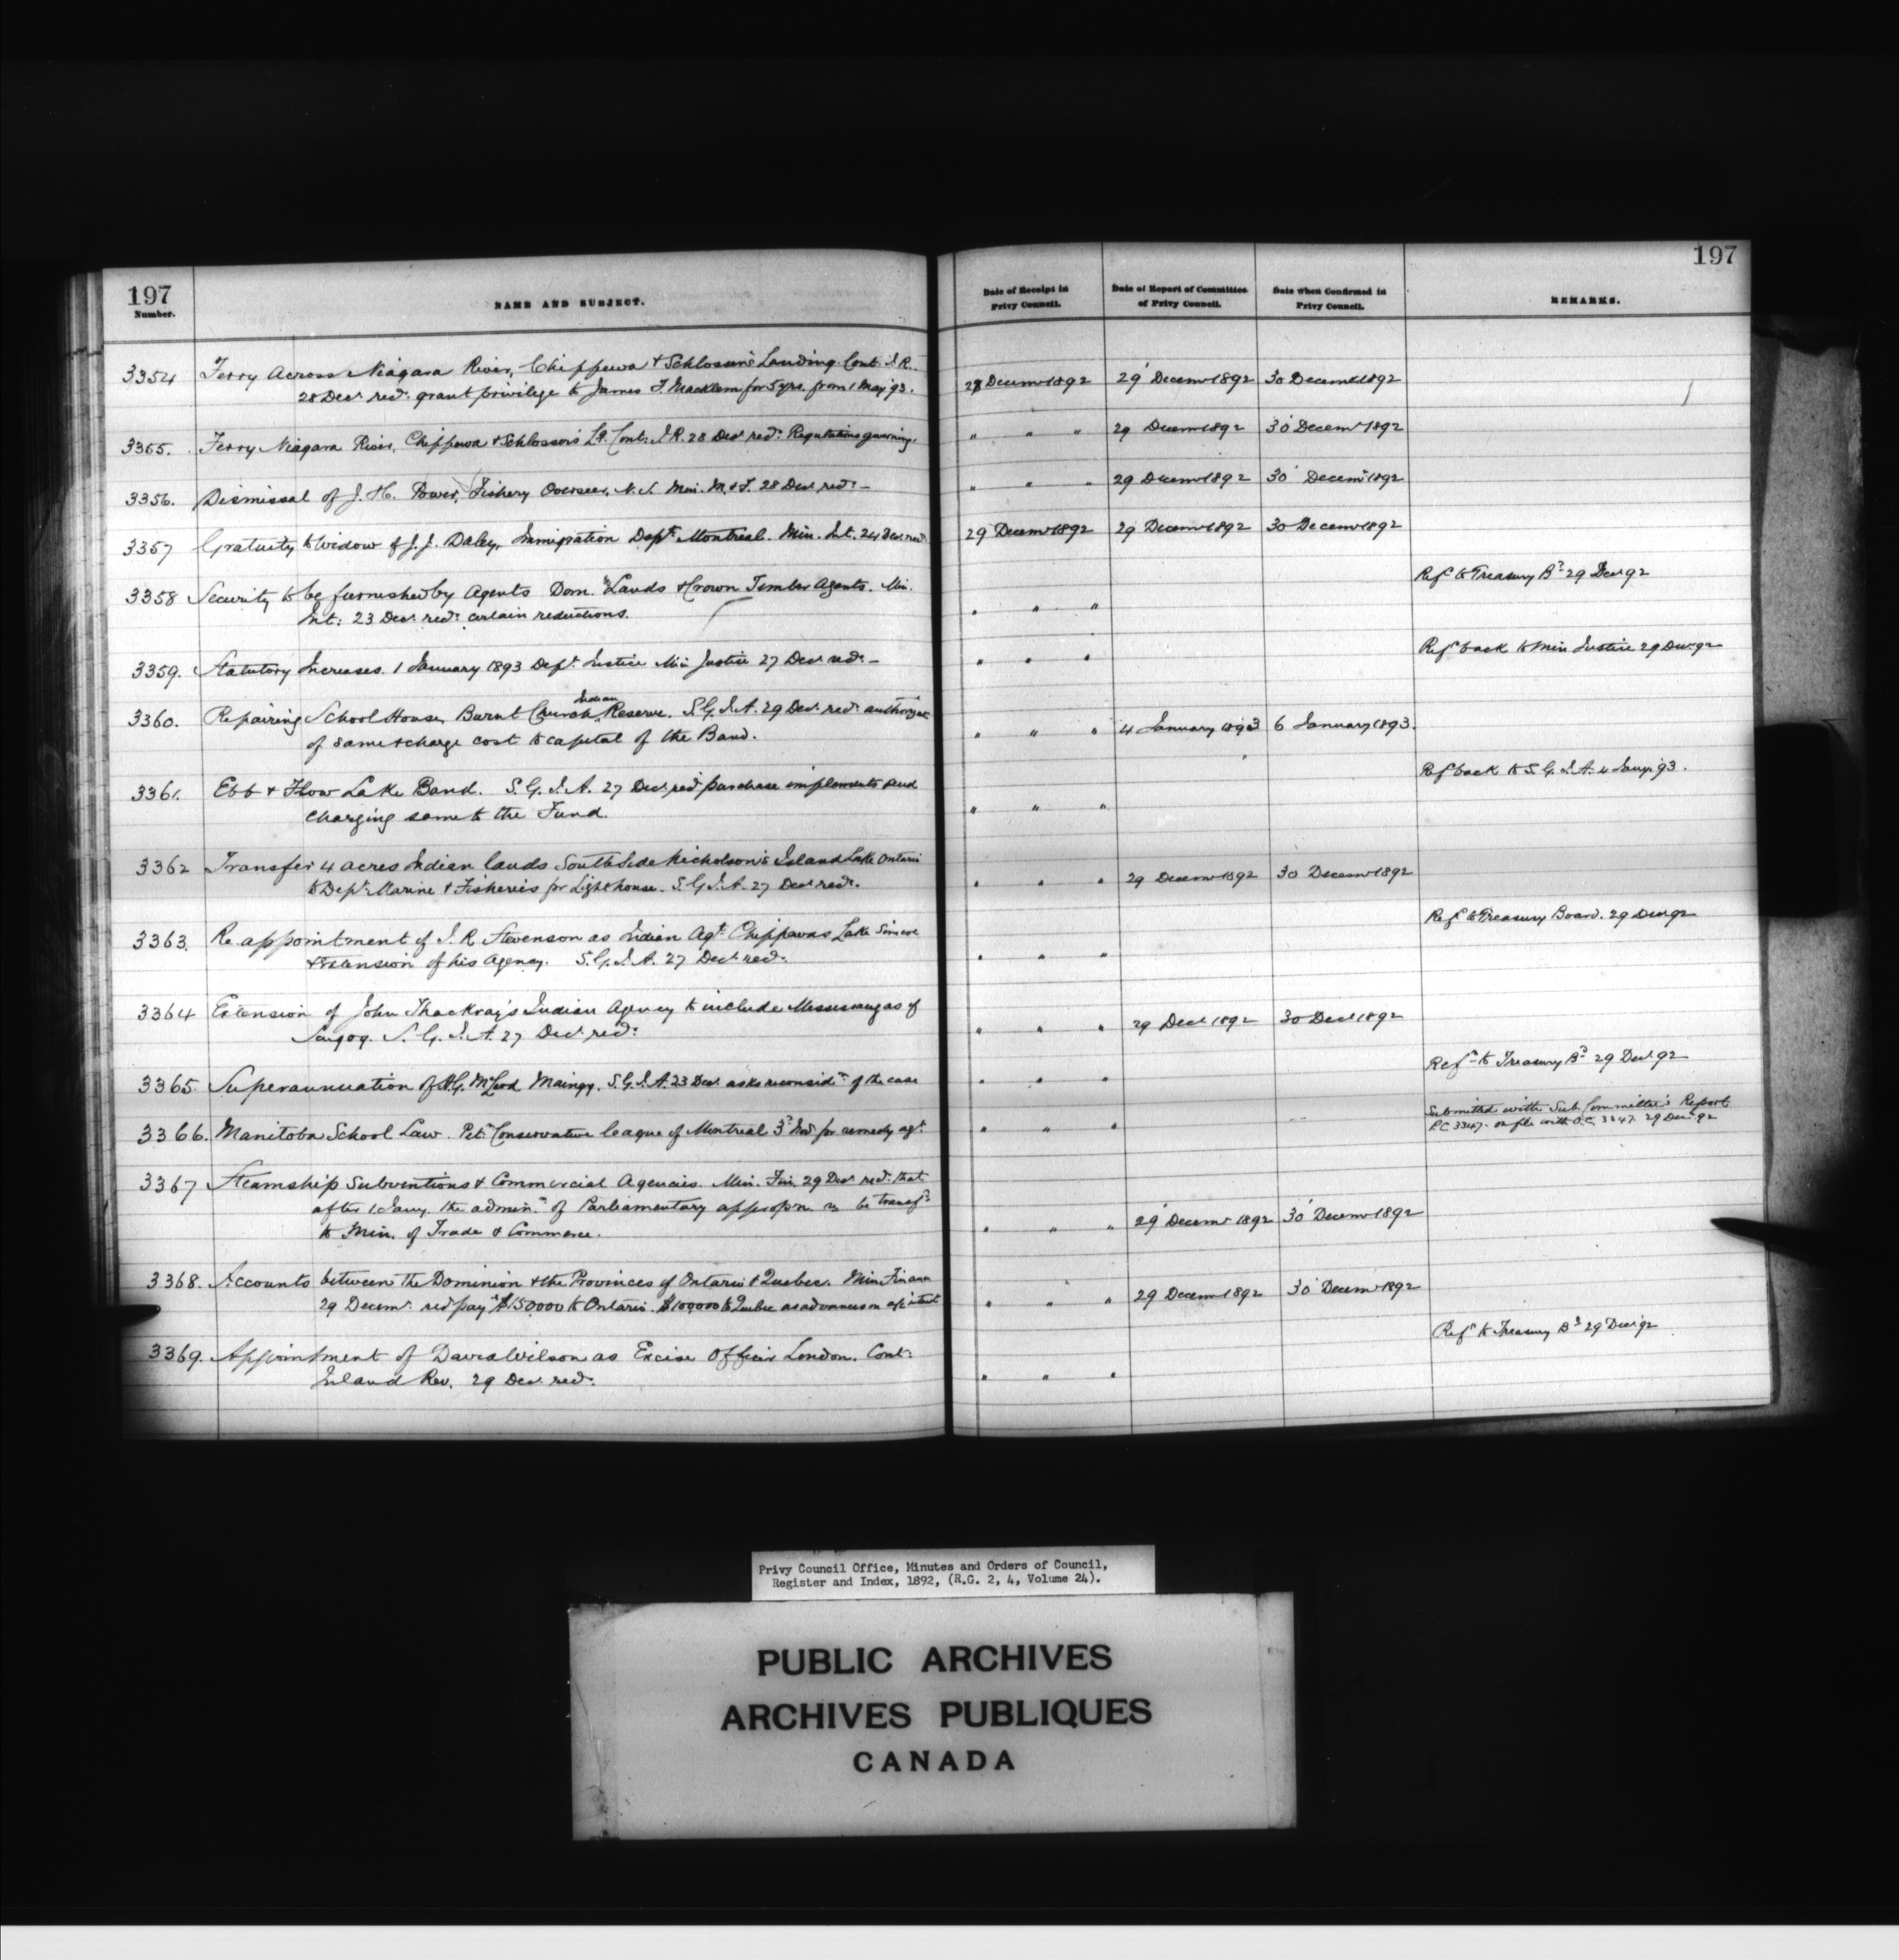 197
Number.
NAME AND SUBJECT.
Date of Receipt in Privy Council.
Date of Report of Committee of Privy Council.
Date when Confirmed in Privy Council.
REMARKS.
197
3354 Ferry Across Niagara River, Chippewa & Schlosser's Landing. Cont: I.R.
28 Decr. recd: grant privilege to James F. Macklem for 5 yrs. from 1 May '93. 28 Decemr 1892 29 Decemr 1892 30 Decemr 1892
3355. Ferry Niagara River, Chippewa & Schlosser's Lg. Cont: I.R. 28 Decr recd: Regulations governing. " " " 29 Decemr 1892 30 Decemr 1892
3356. Dismissal of J. H. Power, Fishery Overseer, N.S. Min. M. & F. 28 Decr recd: – " " " 29 Decemr 1892 30 Decemr 1892
3357 Gratuity to Widow of J. J. Daley, Immigration Dept. Montreal. Min. Int. 24 Decr. recd: 29 Decemr 1892 29 Decemr 1892 30 Decemr 1892
3358 Security to be furnished by Agents Dom. Lands & Crown Timber Agents. Min. Refd to Treasury Bd. 29 Decr 92
Int: 23 Decr. recd: certain reductions. " " "
3359. Statutory Increases. 1 January 1893 Dept. Justice Min Justice 27 Decr recd: – " " " Refd back to Min Justice 29 Decr 92
3360. Repairing School House, Burnt Church Indian Reserve. S.G.I.A. 29 Decr. recd:
of same & charge cost to capital of the Band. " " " 4 January 1893 6 January 1893.
3361. Ebb & Flow Lake Band. S.G.I.A. 27 Decr recd: purchase implements and Ref back to S.G.I.A. 4 Jany. '93.
charging same to the Fund. " " "
3362 Transfer 4 acres Indian lands South Side Nicholson's Island Lake Ontario
to Dept. Marine & Fisheries for Lighthouse. S.G.I.A. 27 Decr recd. " " " 29 Decemr 1892 30 Decemr 1892
3363. Re appointment of J. R Stevenson as Indian Agt. Chippewas Lake Simcoe Refd to Treasury Board. 29 Decr 92
& Extension of his Agency. S.G.I.A. 27 Decr recd: " " "
3364 Extension of John Thackray's Indian Agency to include Mississaugas of
Scugog. S.G.I.A. 27 Decr recd: " " " 29 Decr 1892 30 Decr 1892
3365 Superannuation of A.G. McLeod Maingy. S.G.I.A. 23 Decr. asks reconsidn. of the case " " " Refd to Treasury Bd. 29 Decr 92
3366. Manitoba School Law. Petn. Conservative League of Montreal 3d Nov for remedy agt. " " " Submitted with Sub Committee's Report
P.C. 3347. on file with O.C. 3347. 29 Decr 92
3367 Steamship Subventions & Commercial Agencies. Min. Fin. 29 Decr recd: that
after 1 Jany. the adminn. of Parliamentary appropn. be transfd
to Min. of Trade & Commerce. " " " 29 Decemr 1892 30 Decemr 1892
3368. Accounts between the Dominion & the Provinces of Ontario & Quebec. Min Finance
29 Decemr. recd pay $150000 to Ontario. $100000 to Quebec as advances " " " 29 Decemr 1892 30 Decemr 1892
3369. Appointment of David Wilson as Excise Officer London. Cont: Refd to Treasury Bd 29 Decr 92
Inland Rev. 29 Decr. recd: " " "
Privy Council Office, Minutes and Orders of Council,
Register and Index, 1892, (R.G. 2, 4, Volume 24).
PUBLIC ARCHIVES
ARCHIVES PUBLIQUES
CANADA